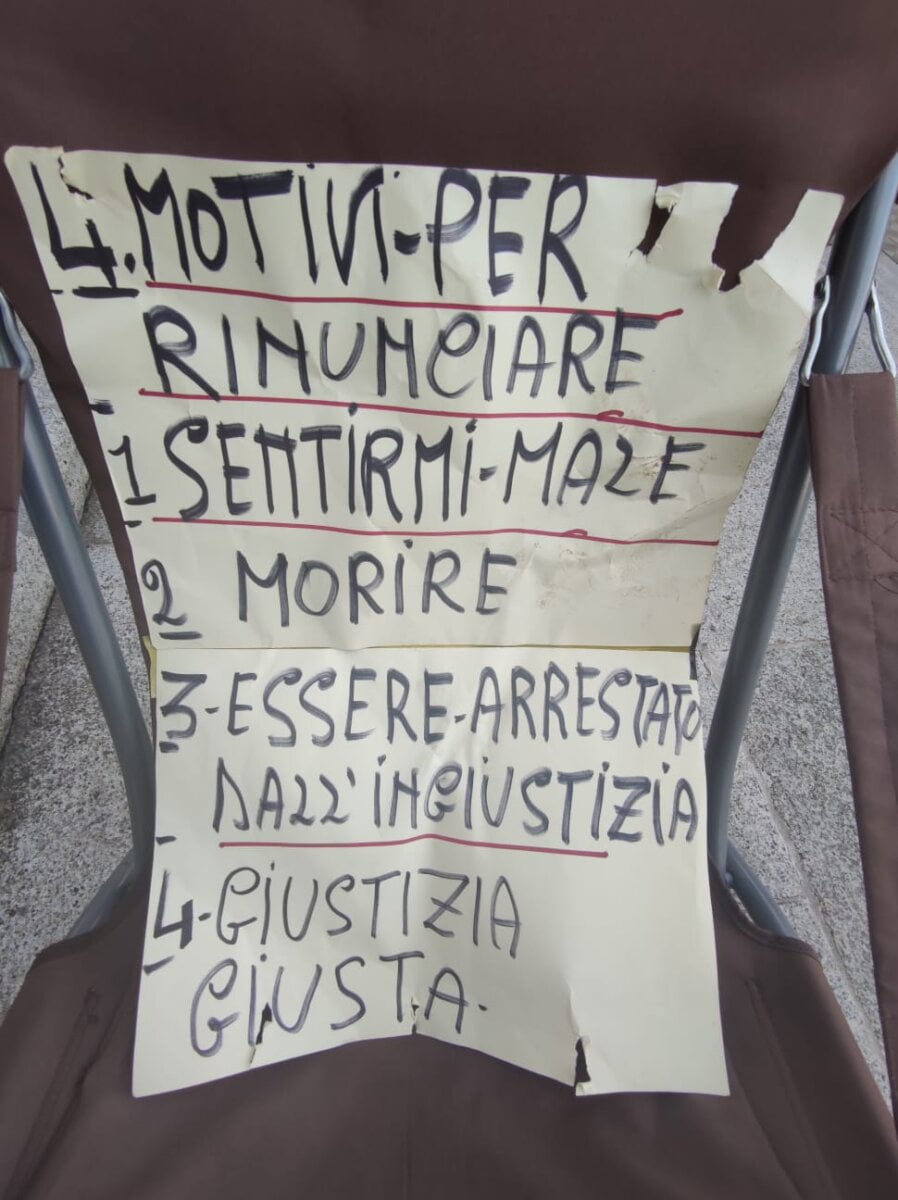 4. MOTIVI-PER
RINUNCIARE
1 SENTIRMI-MALE
2 MORIRE
3-ESSERE-ARRESTATO
DALL'INGIUSTIZIA
4-GIUSTIZIA
GIUSTA-